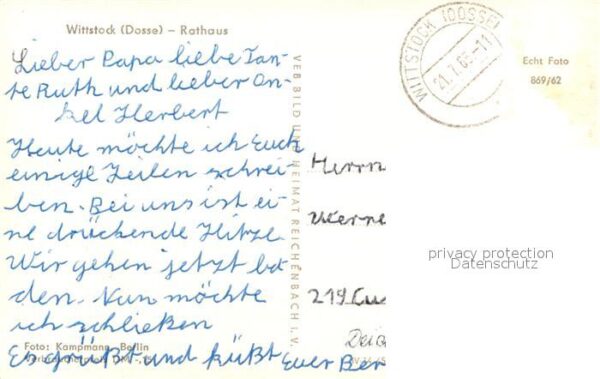 Wittstock (Dosse) – Rathaus
Lieber Papa liebe Tan-
te Ruth und lieber On-
kel Herbert
Heute möchte ich Euch
einige Zeilen schrei-
ben. Bei uns ist ei-
ne drückende Hitze.
Wir gehen jetzt ba
den. Nun möchte
ich schließen
Es grüßt und küßt Euer Ber
Foto: Kampmann, Berlin
Verbraucherpreis DM
VEB BILD UND HEIMAT REICHENBACH I. V.
WITTSTOCK (DOSSE)
-11
Echt Foto
869/62
Herrn
Werne
219 Cu
privacy protection
Datenschutz